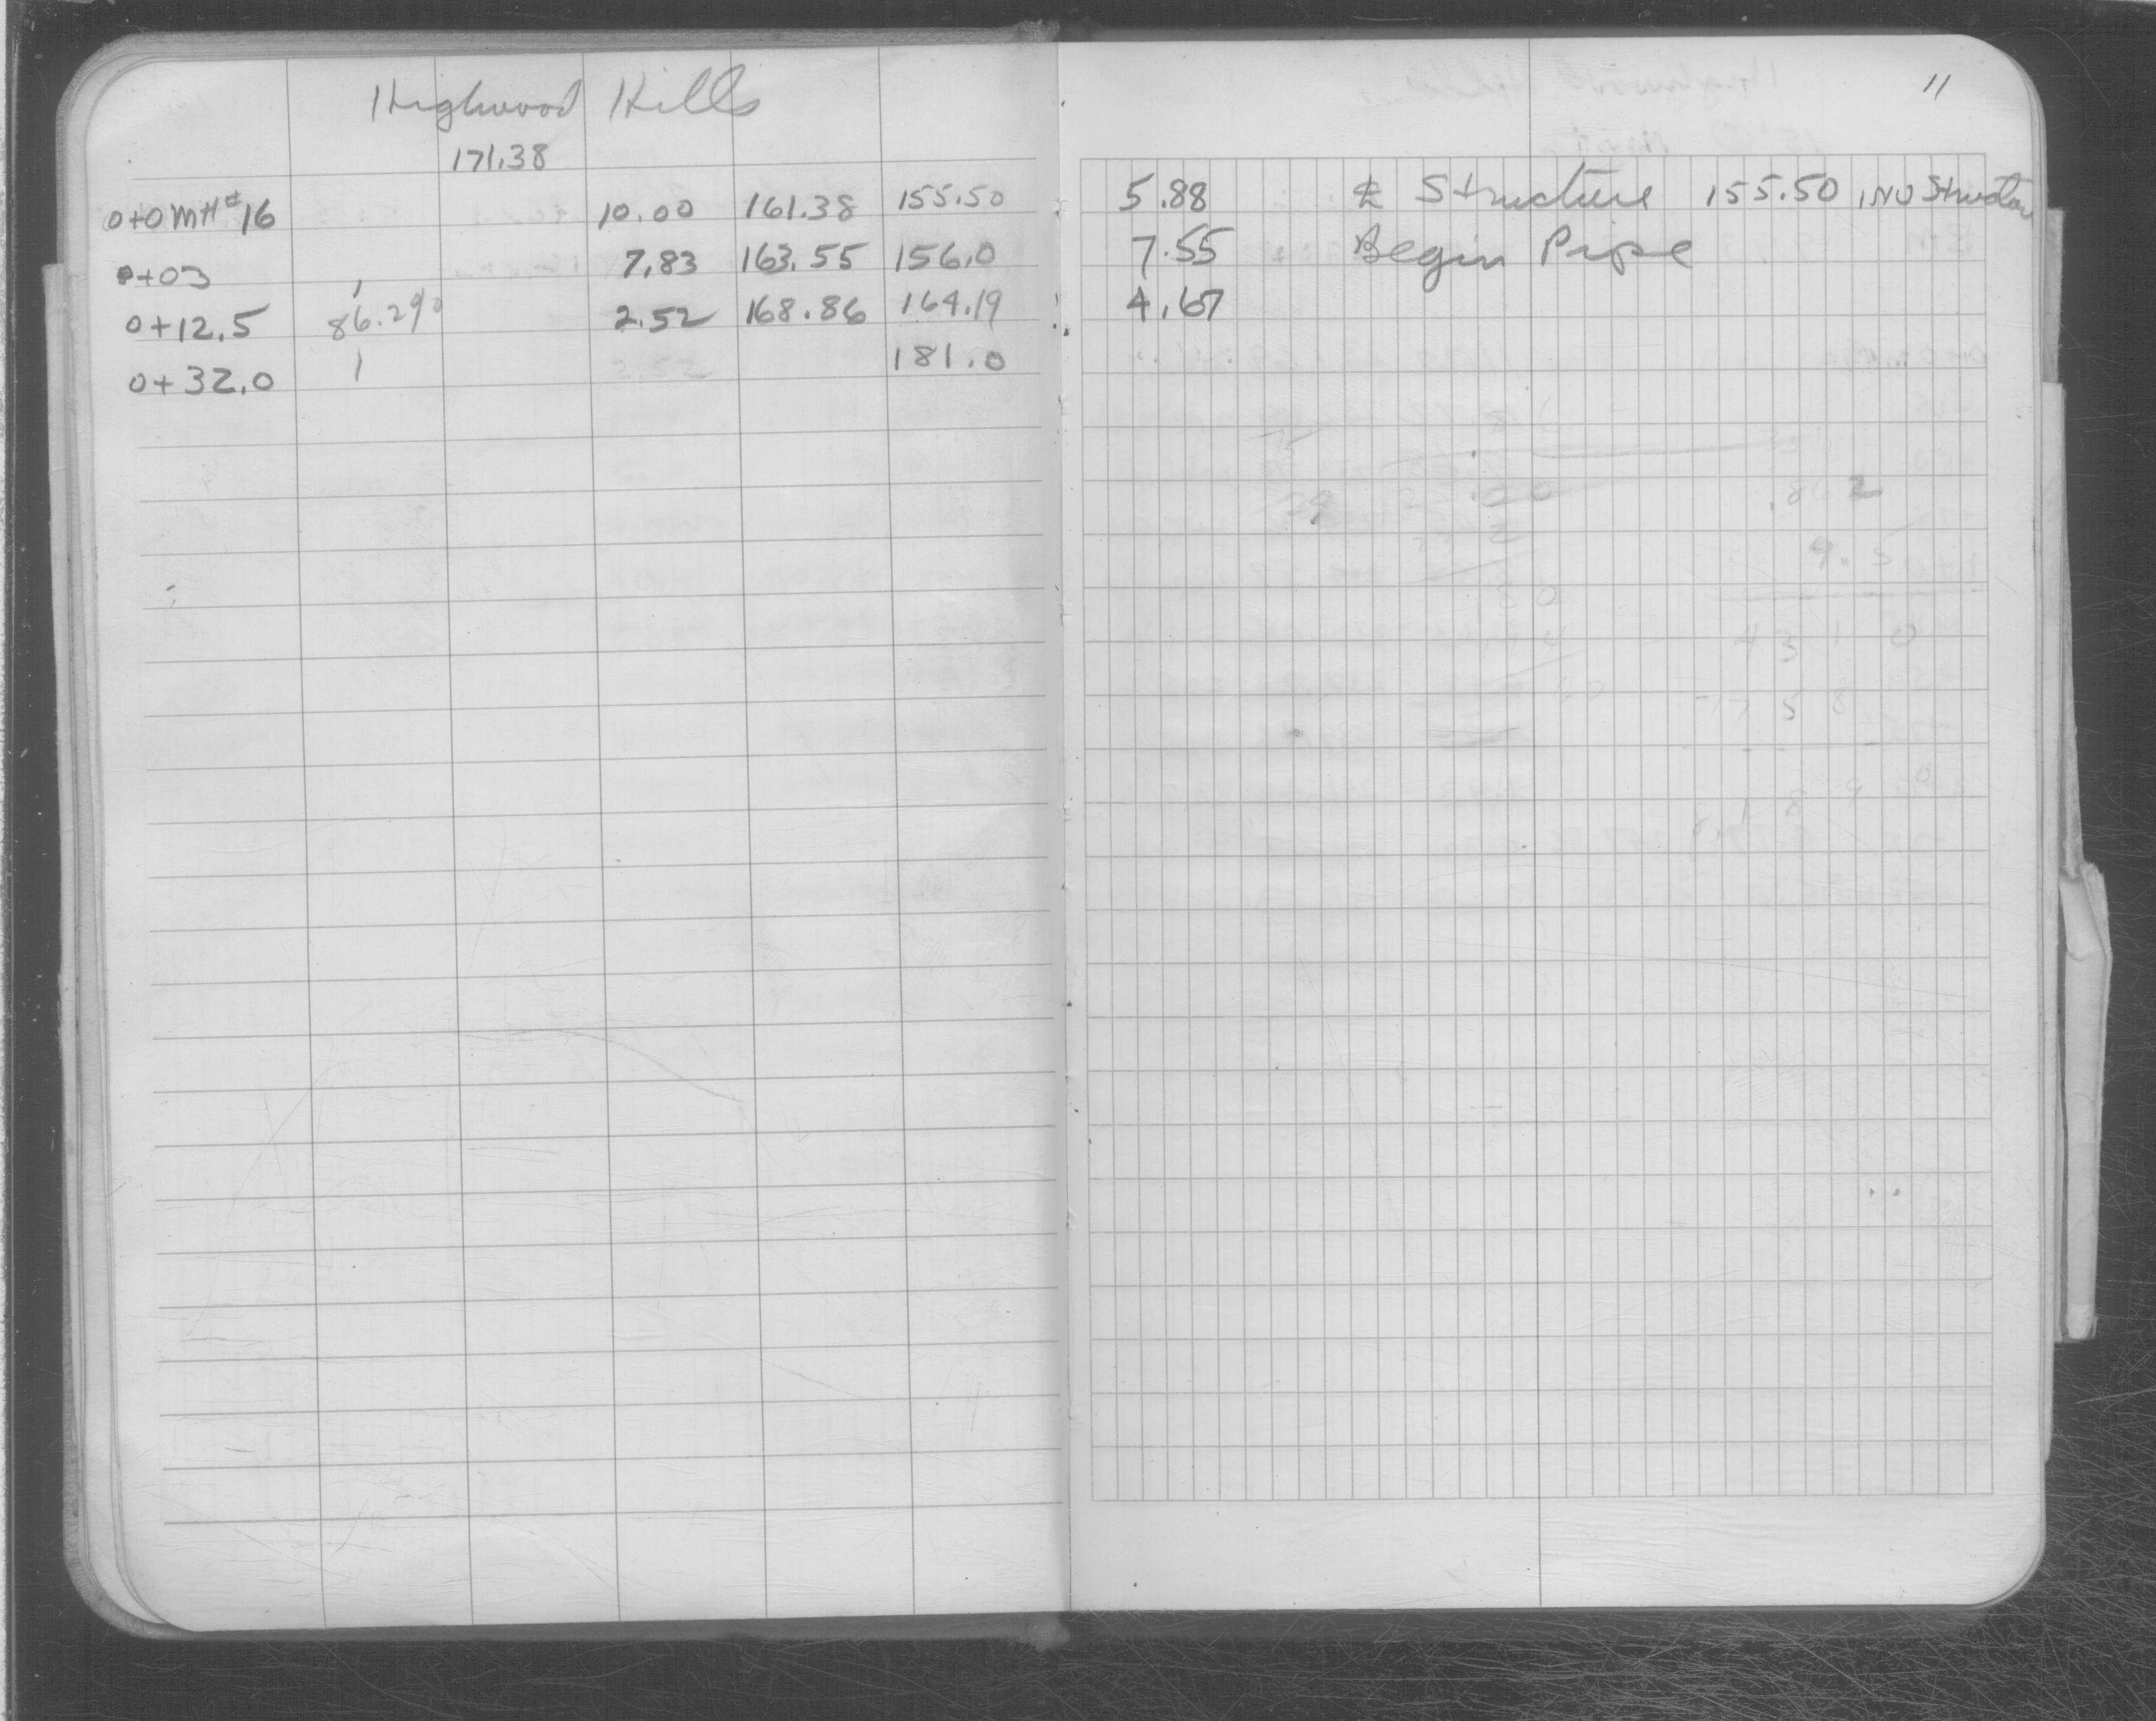 Highwood Hills
11
171.38
0+0 MH #16 10.00 161.38 155.50 5.88 ℄ Structure 155.50 INV Structure
0+03 7.83 163.55 156.0 7.55 Begin Pipe
0+12.5 86.2% 2.52 168.86 164.19 4.67
0+32.0 181.0
.862
9.5
4310
7758
8.1890